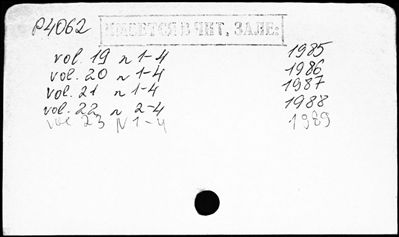 P4062 ИМЕЕТСЯ В ЧИТ. ЗАЛЕ:
vol. 19 n 1-4 1985
vol. 20 n 1-4 1986
vol. 21 n 1-4 1987
vol. 22 n 2-4 1988
vol 23 N 1-4 1989